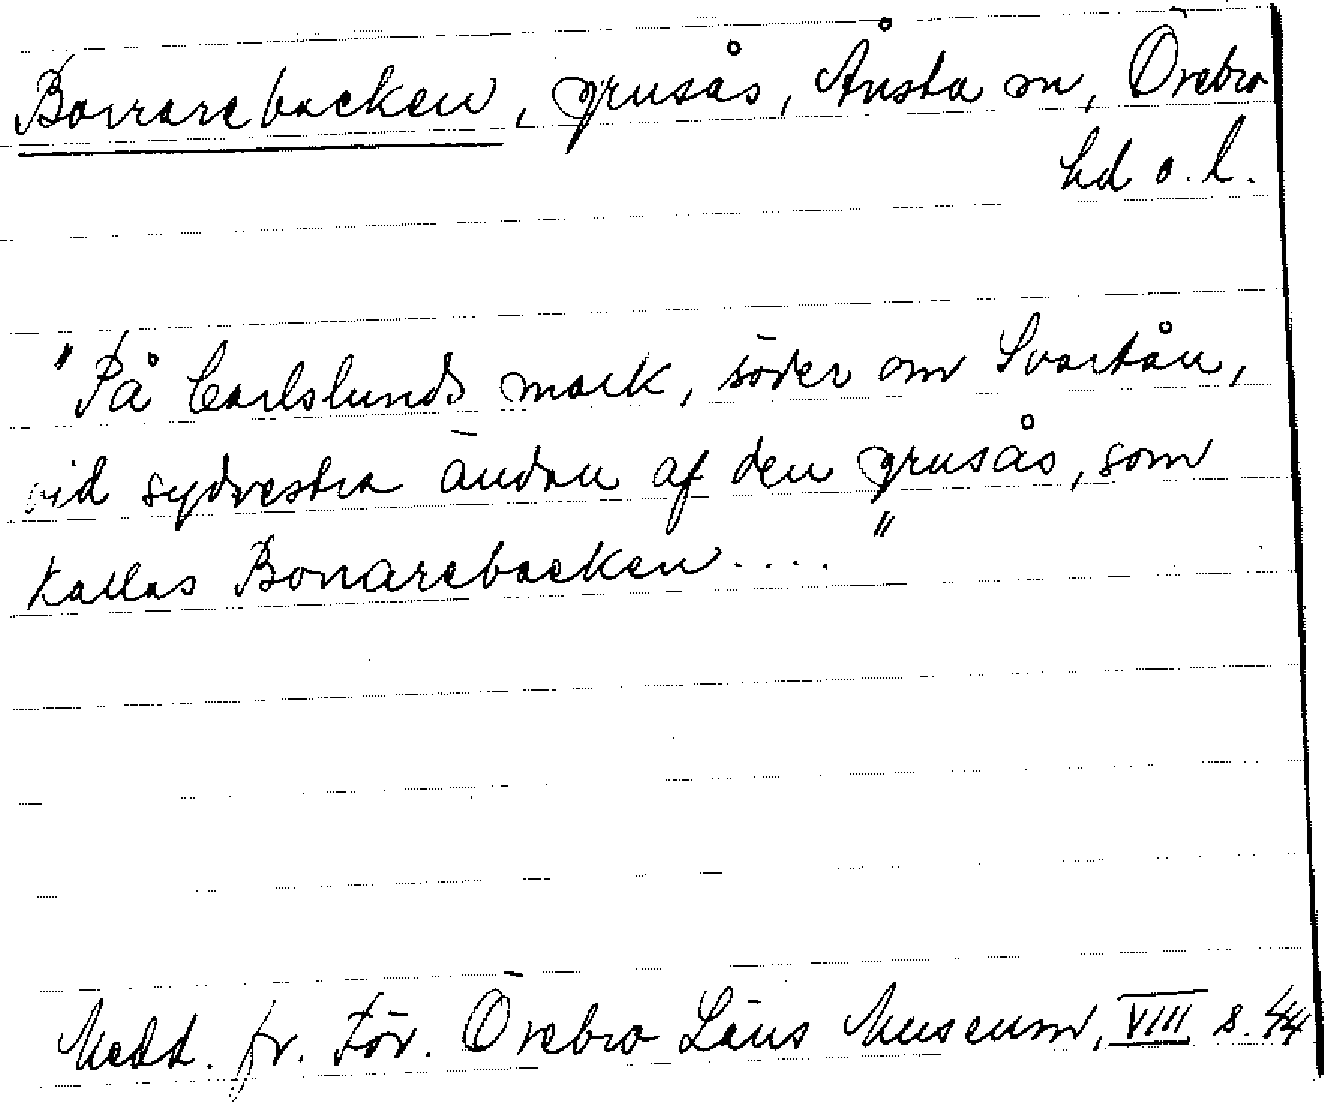 Borrarebacken, grusås, Ånsta sn, Örebro
hd o. l.
"På Carlslunds mark, söder om Svartån,
vid sydvestra ändan af den grusås, som
kallas Borrarebacken...."
Medd. fr. För. Örebro Läns Museum, VIII s. 44